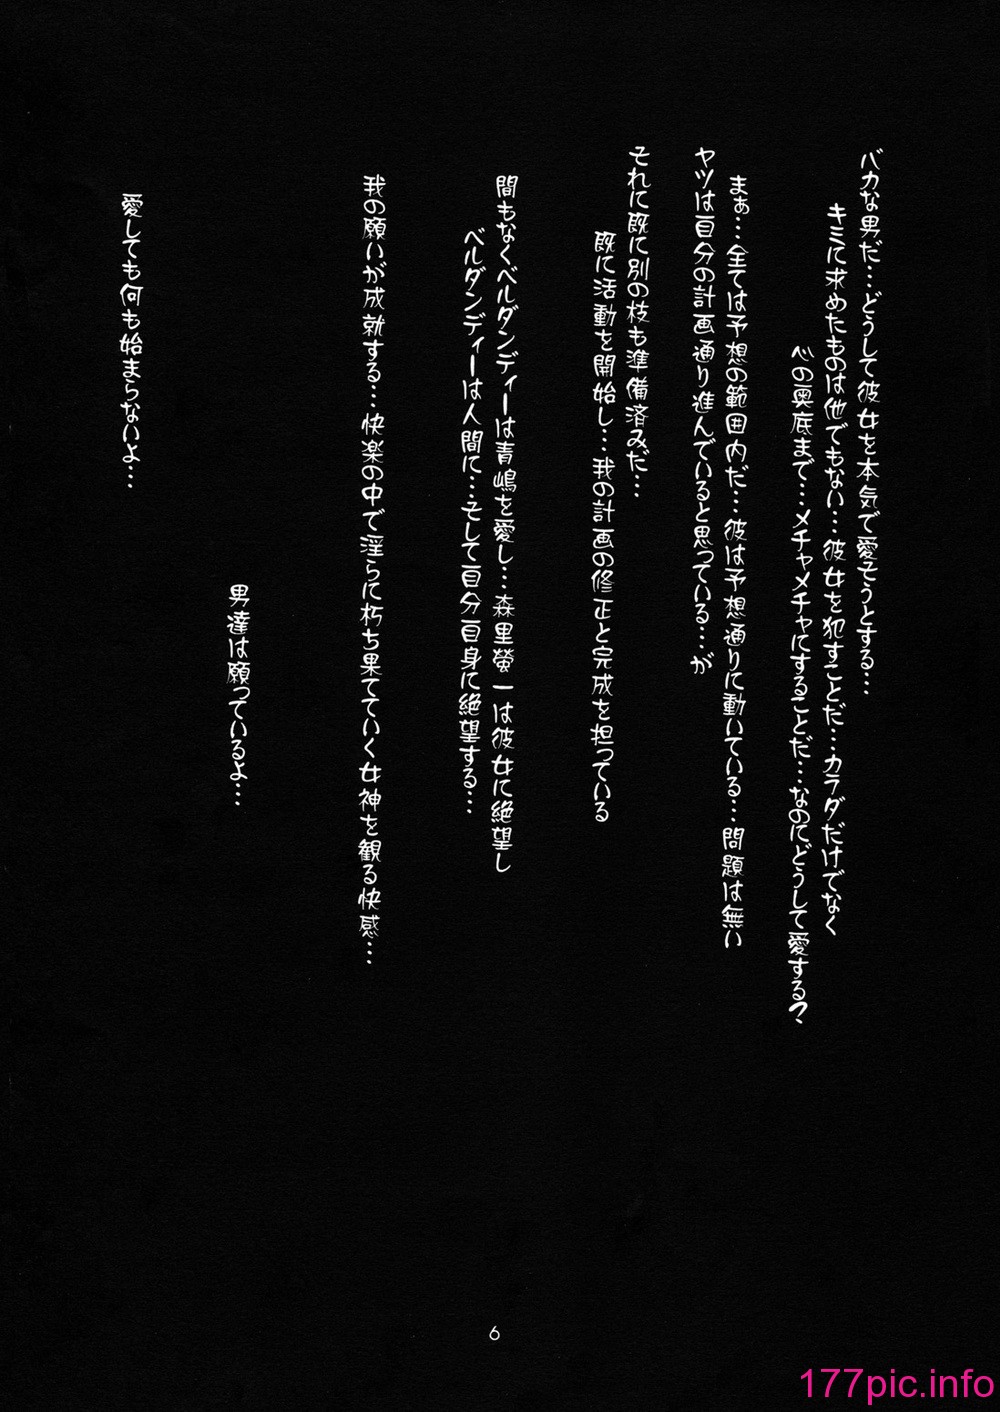 バカな男だ…どうして彼女を本気で愛そうとする…
キミに求めたものは他でもない…彼女を犯すことだ…カラダだけでなく
心の奥底まで…メチャメチャにすることだ…なのにどうして愛する？
まぁ…全ては予想の範囲内だ…彼は予想通りに動いている…問題は無い
ヤツは自分の計画通り進んでいると思っている…が
それに既に別の枝も準備済みだ…
既に活動を開始し…我の計画の修正と完成を担っている
間もなくベルダンディーは青嶋を愛し…森里螢一は彼女に絶望し
ベルダンディーは人間に…そして自分自身に絶望する…
我の願いが成就する…快楽の中で淫らに朽ち果てていく女神を観る快感…
男達は願っているよ…
愛しても何も始まらないよ…
6
177pic.info